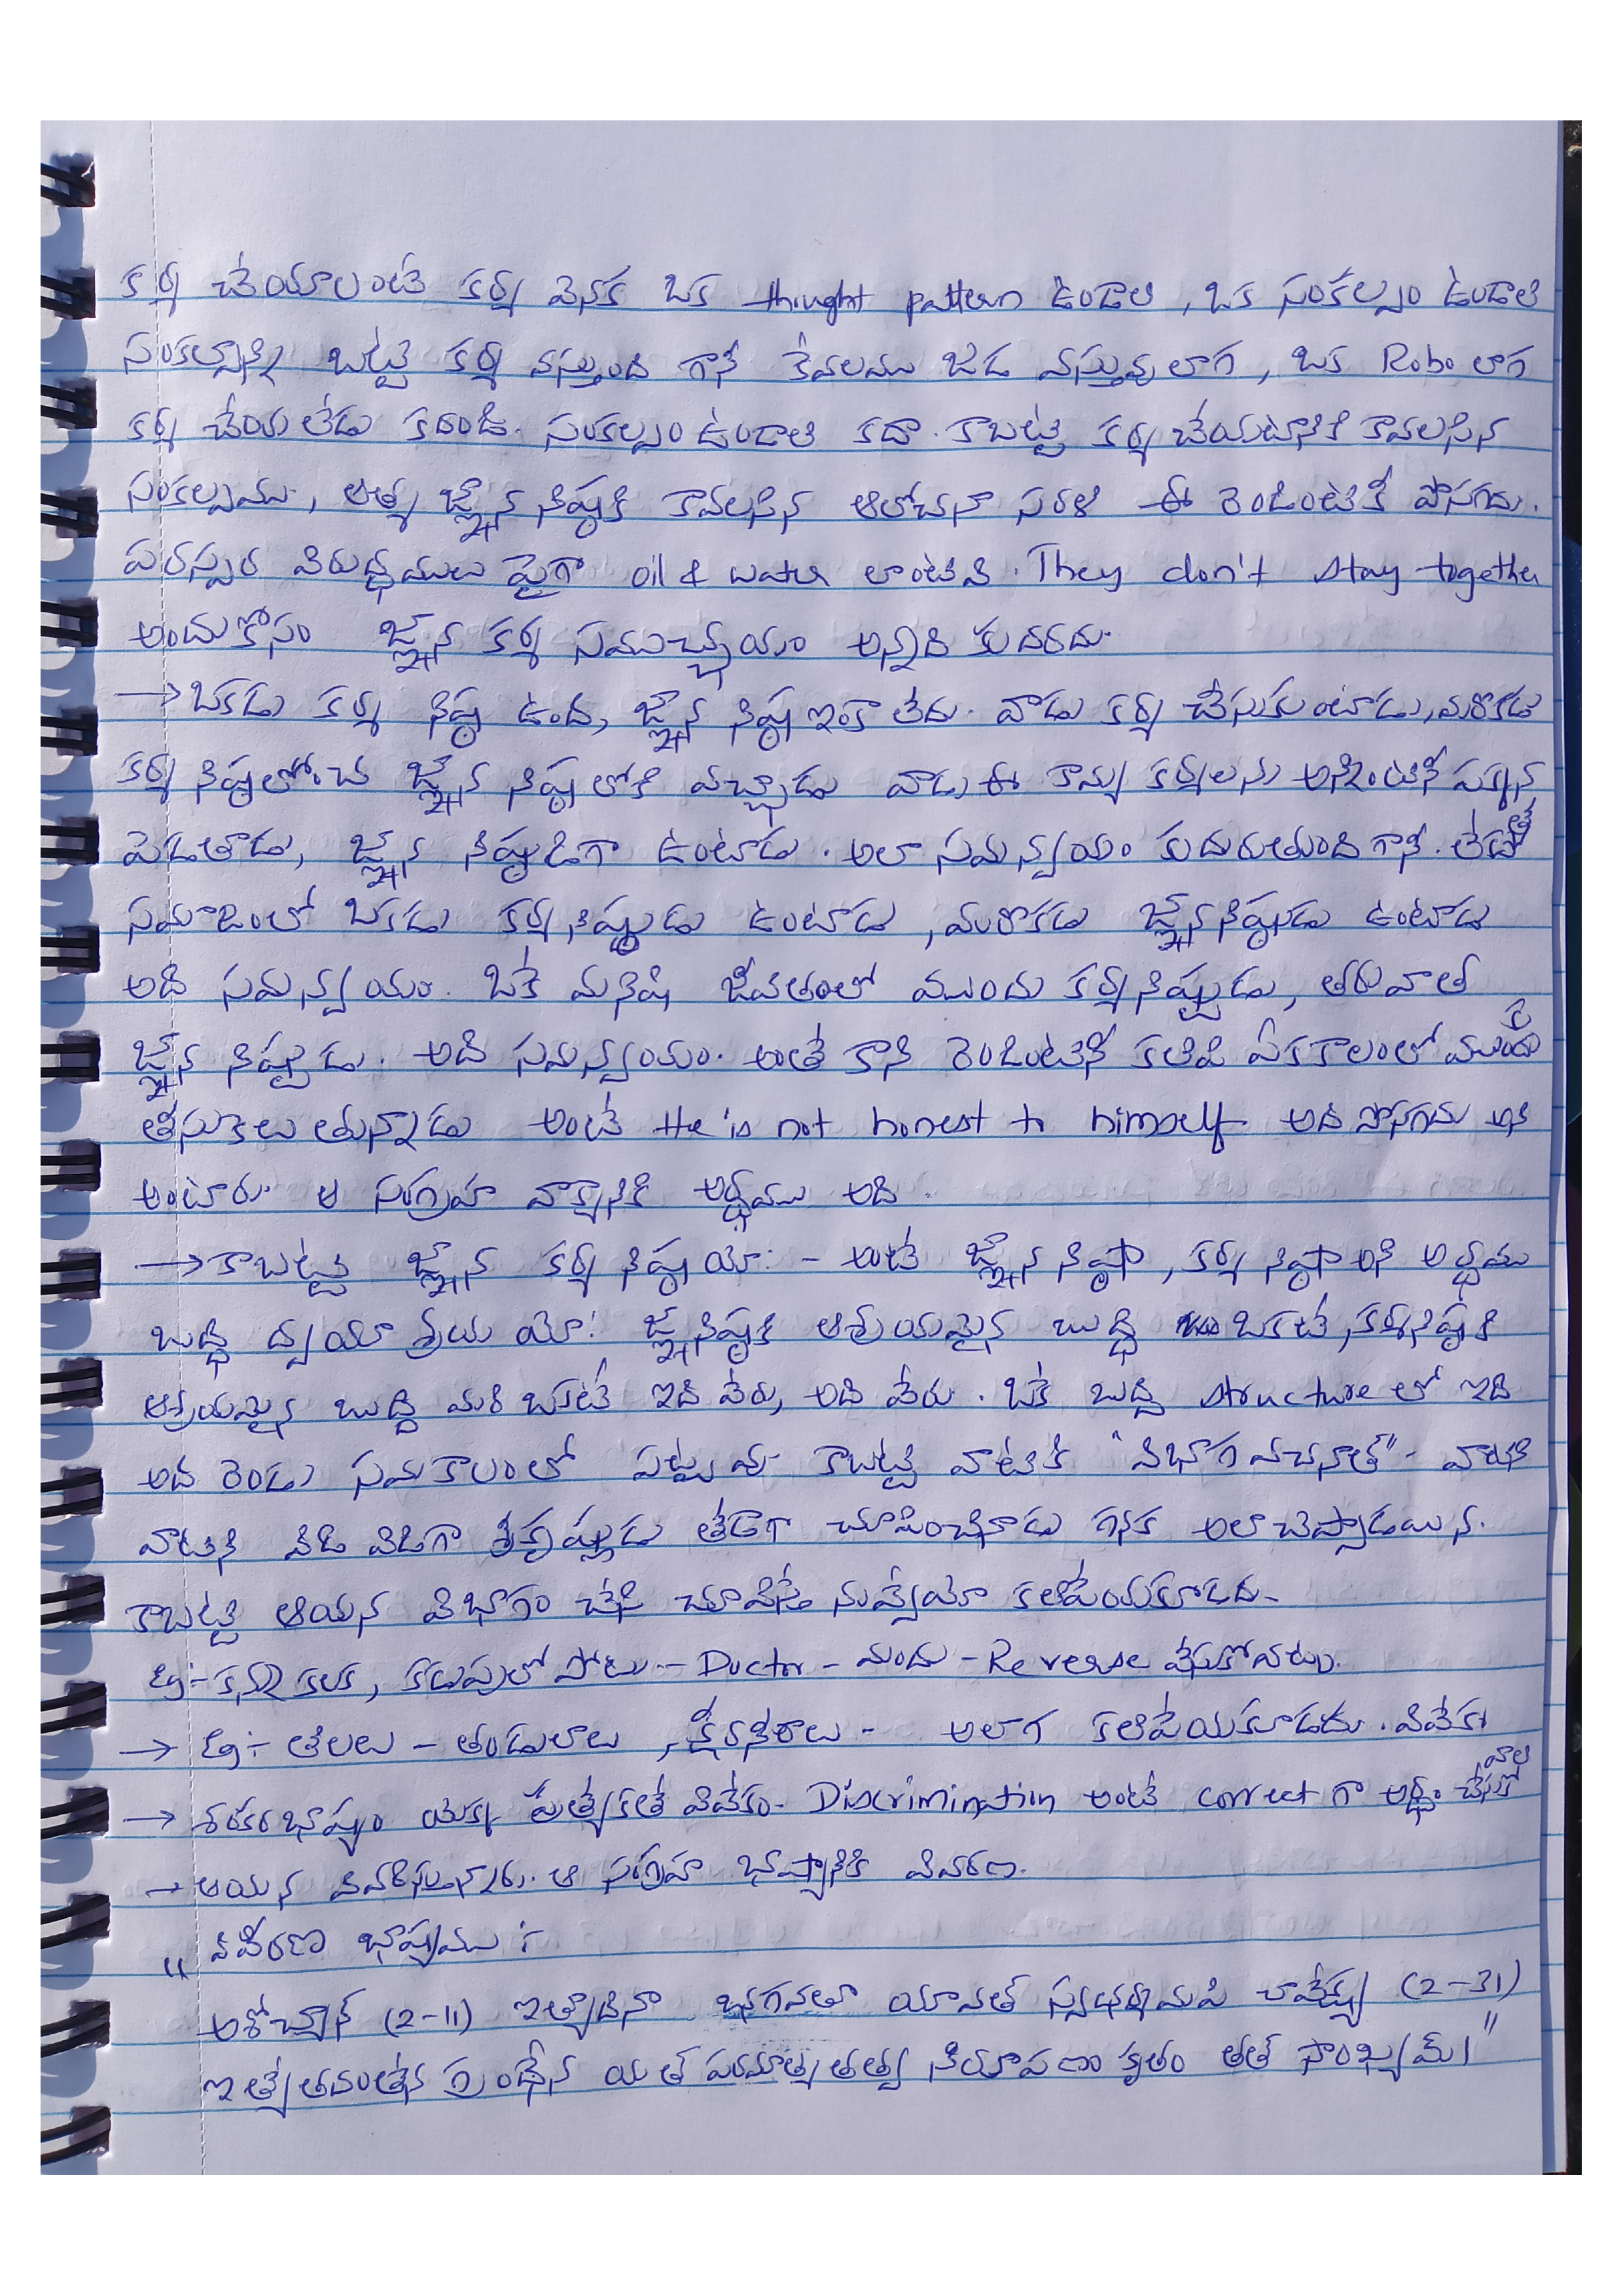 కర్మ చేయాలంటే కర్మ వెనక ఒక thought pattern ఉండాలి, ఒక సంకల్పం ఉండాలి
సంకల్పాన్ని బట్టి కర్మ వస్తుంది గానీ కేవలము జడ వస్తువు లాగ, ఒక Robo లాగ
కర్మ చేయలేడు కదండి. సంకల్పం ఉండాలి కదా. కాబట్టి కర్మ చేయటానికి కావలసిన
సంకల్పము, ఆత్మ జ్ఞాన నిష్ఠకి కావలసిన ఆలోచనా సరళి ఈ రెండింటికీ పొసగదు.
పరస్పర విరుద్ధములు పైగా oil & water లాంటివి. They don't stay together
అందుకోసం జ్ఞాన కర్మ సముచ్చయం అన్నది కుదరదు.
→ ఒకడు కర్మ నిష్ఠ ఉంది, జ్ఞాన నిష్ఠ ఇంకా లేదు. వాడు కర్మ చేసుకుంటాడు, మరొకడు
కర్మ నిష్ఠలోంచి జ్ఞాన నిష్ఠలోకి వచ్చాడు వాడు ఈ కామ్య కర్మలను అన్నింటినీ పక్కన
పెడతాడు, జ్ఞాన నిష్ఠుడిగా ఉంటాడు. అలా సమన్వయం కుదురుతుంది గానీ. లేదా
సమాజంలో ఒకడు కర్మనిష్ఠుడు ఉంటాడు, మరొకడు జ్ఞాననిష్ఠుడు ఉంటాడు
అది సమన్వయం. ఒకే మనిషి జీవితంలో ముందు కర్మనిష్ఠుడు, తరువాత
జ్ఞాన నిష్ఠుడు. అది సమన్వయం. అంతే కాని రెండింటినీ కలిపి ఏకకాలంలో ముందుకి
తీసుకెలుతున్నాడు అంటే He is not honest to himself. అది పోసగదు అని
అంటారు. ఆ సంగ్రహ వాక్యానికి అర్థము అది.
→ కాబట్టి జ్ఞాన కర్మ నిష్ఠయోః - అంటే జ్ఞాన నిష్ఠా, కర్మ నిష్ఠా అని అర్థము
బుద్ధి ద్వయాశ్రయయోః జ్ఞాననిష్ఠకి ఆశ్రయమైన బుద్ధి ఒకటి, కర్మనిష్ఠకి
ఆశ్రయమైన బుద్ధి మరి ఒకటి ఇది వేరు, అది వేరు. ఒకే బుద్ధి structure లో ఇది
అది రెండు సమకాలంలో పట్టవు. కాబట్టి వాటికి "విభాగ వచనాత్" - వాటికి
వాటిని విడి విడిగా శ్రీకృష్ణుడు తేడాగా చూపించినాడు గనక అలా చెప్పాడాయన.
కాబట్టి ఆయన విభాగం చేసి చూపిస్తే నువ్వేమో కలిపేయకూడదు.
Eg:- కన్ను కలక, కడుపులో పోటు - Doctor - మందు - Reverse వేసుకోవటం.
→ Eg:- తిలలు - తండులాలు, క్షీరనీరాలు - అలాగ కలిపేయకూడదు. వివేకం
→ శంకరభాష్యం యొక్క ప్రత్యేకతే వివేకం. Discrimination అంటే correct గా అర్థం చేసుకోవాలి
→ ఆయన వివరిస్తున్నారు. ఆ సంగ్రహ భాష్యానికి వివరణ.
వివరణ భాష్యము :-
" అశోచ్యాన్ (2-11) ఇత్యాదినా భగవతా యావత్ స్వధర్మమపి చావేక్ష్య (2-31)
ఇత్యేతదంతేన గ్రంథేన యత్ పరమాత్మతత్త్వ నిరూపణం కృతం తత్ సాంఖ్యమ్।"